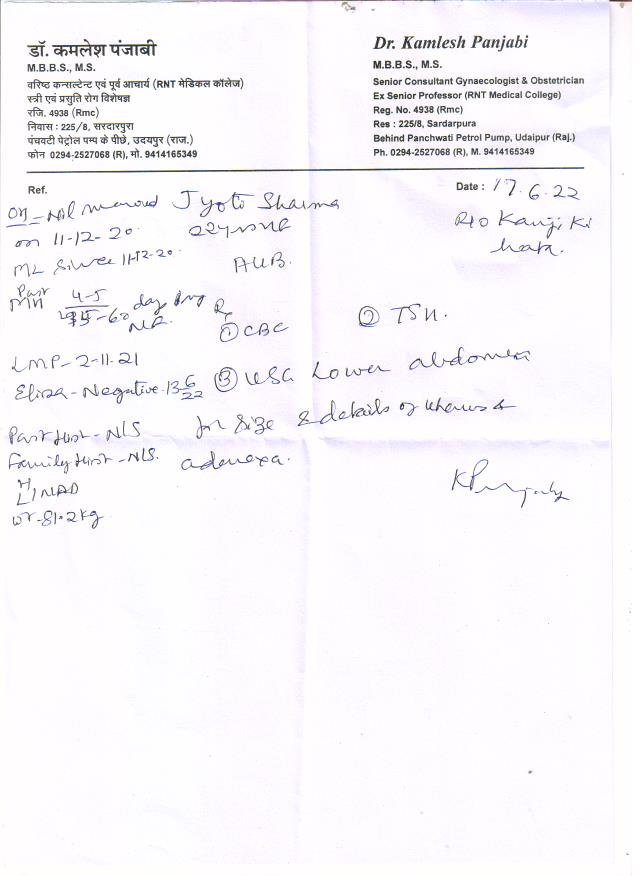 डॉ. कमलेश पंजाबी
M.B.B.S., M.S.
वरिष्ठ कन्सल्टेन्ट एवं पूर्व आचार्य (RNT मेडिकल कॉलेज)
स्त्री एवं प्रसुति रोग विशेषज्ञ
रजि. 4938 (Rmc)
निवास : 225/8, सरदारपुरा
पंचवटी पेट्रोल पम्प के पीछे, उदयपुर (राज.)
फोन 0294-2527068 (R), मो. 9414165349
Dr. Kamlesh Panjabi
M.B.B.S., M.S.
Senior Consultant Gynaecologist & Obstetrician
Ex Senior Professor (RNT Medical College)
Reg. No. 4938 (Rmc)
Res : 225/8, Sardarpura
Behind Panchwati Petrol Pump, Udaipur (Raj.)
Ph. 0294-2527068 (R), M. 9414165349
Ref.
Date : 17.6.22
Jyoti Sharma
R/o Kanji Ki
hata.
OH - Nil
on 11-12-20
ML Since 11-12-20
AUB.
Past
MH 4-5
Rx
① CBC
② TSH.
LMP - 2-11-21
Eliza - Negative - 13 6/22
③ USG Lower abdomen
for size & details of uterus &
adenexa.
Past Hist - NLS
Family Hist - NLS.
H
L NAD
WT - 81.2 kg